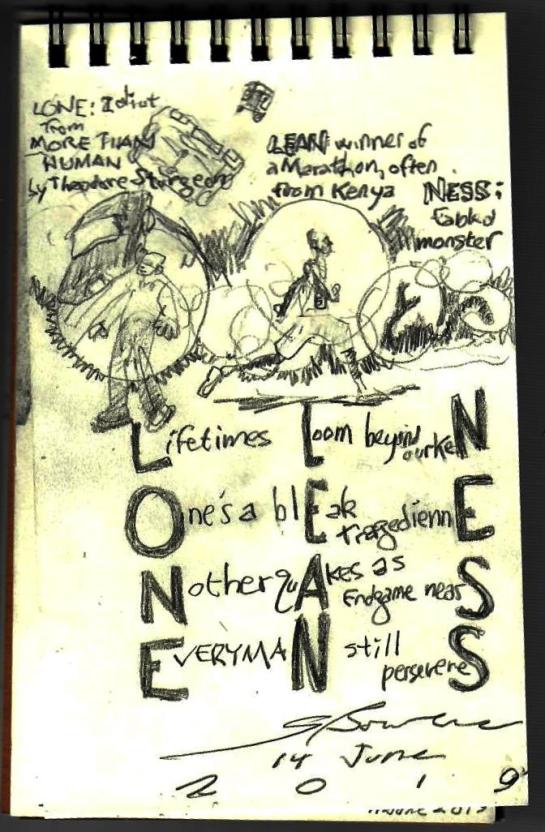 LONE: Idiot
from
MORE THAN
HUMAN
by Theodore Sturgeon
LEAN: winner of
a Marathon, often
from Kenya
NESS:
fabled
monster
Lifetimes Loom beyond our keN
One's a blEak tragediennE
Nother quAkes as Endgame nearS
EVERYMAN still persevereS
14 June
2019